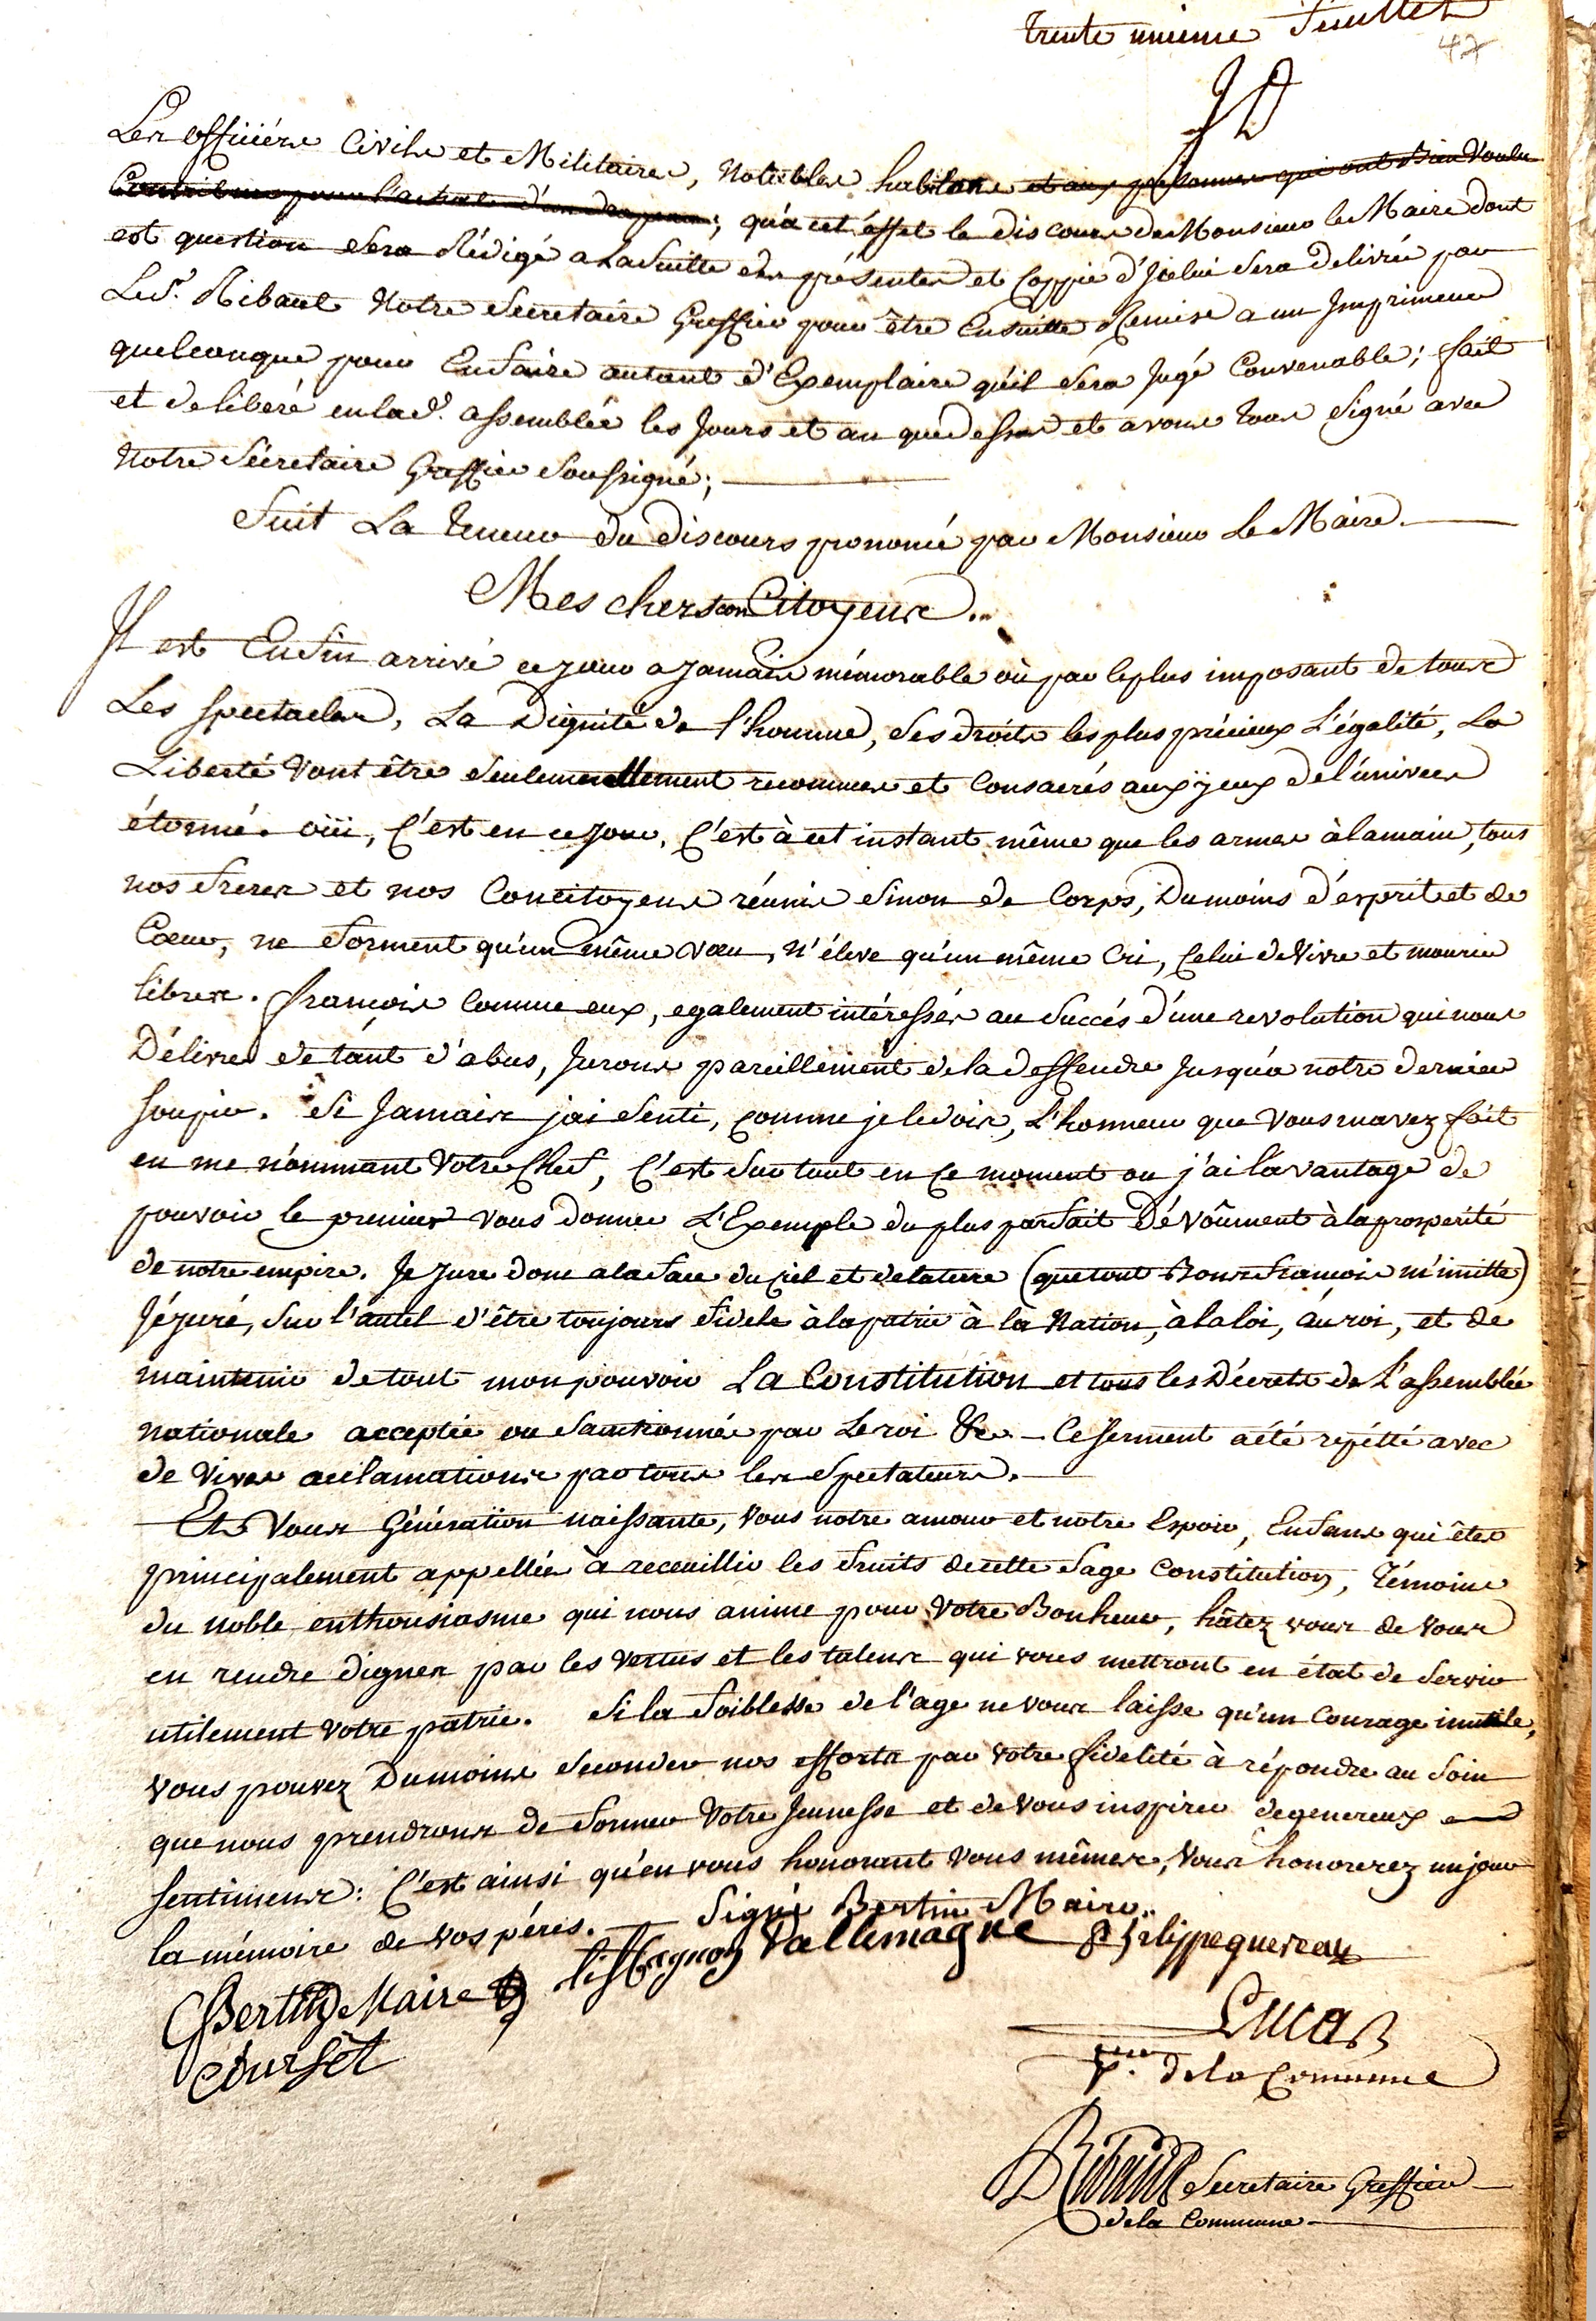 trente unieme feuillet
47
JD
Les officiérs Civils et Militaires, Notables habitans et aux personnes qui ont Bien Voulu
Contribuer pour l'achat d'un drapeau; qu'a cet éffet le discours de Monsieur le Maire dont
est question Sera Rédigé a la Suitte des présentes et Coppie d'Jcelui Sera delivrée par
Led.t Ribault Notre Secretaire Greffier pour être Ensuitte Remise a un Jmprimeur
quelconque pour En faire autant d'Exemplaire qu'il Sera Jugé Convenable; fait
et deliberé en lad.e assemblée les Jours et an que dessus et avons tous Signé avec
Notre Sécretaire Greffier Soussigné;
Suit La Teneur du discours prononcé par Monsieur Le Maire.
Mes chers con Citoyens..
Jl est Enfin arrivé ce jour a jamais mémorable où par le plus imposant de tous
Les Spectacles, La Dignité de l'homme, Ses droits les plus précieux L'égalité, La
Liberté Vont être Seulemenellement reconnues et Consacrés aux yeux de l'univers
étonné. oüi, C'est en ce jour, C'est à cet instant même que les armes à la main, tous
nos freres et nos Concitoyens réunis Sinon de Corps, Dumoins d'esprit et de
Coeur, ne forment qu'un même voeu, N'éleve qu'un même Cri, Celui de Vivre et mourir
libres. françois Comme eux, egalement intéressés au Succés d'une revolution qui nous
Délivre de tant d'abus, Jurons pareillement de la deffendre Jusqu'a notre dernier
Soupir. Si Jamais j'ai Senti, comme je le dois, L'honneur que Vous m'avez fait
en me nommant Votre Chef, C'est Sur tout en Ce moment ou j'ai l'avantage de
pouvoir le premier vous donner L'Exemple du plus parfait Dévoûment à la prosperité
de notre empire. Je Jure donc a la face du Ciel et de la terre (que tout Bons françois m'imitte)
Jé juré, Sur l'autel d'être toujours fidele à la patrie à la Nation, à la loi, au roi, et de
maintenir de tout mon pouvoir La Constitution et tous les Décrets de L'assemblée
nationale acceptée ou Sanctionnés par Le roi &c. — Ce Serment a été répetté avec
de Vives acclamations par tous les Spectateurs.
Et Vous Génération naissante, Vous notre amour et notre Espoir, Enfans qui êtes
principalement appellés à receuillir les fruits de cette Sage Constitution, Témoins
du noble enthousiasme qui nous anime pour Votre Bonheur, hâtez vous de Vous
en rendre dignes par les Vertus et les talens qui vous mettront en état de Servir
utilement Votre patrie. Si la foiblesse de l'age ne vous laisse qu'un Courage inutile,
vous pouvez Dumoins Seconder nos efforts par votre fidelité à répondre au Soin
que nous prendrons de former Votre Jeunesse et de Vous inspirer de genereux
Sentimens: C'est ainsi qu'en vous honorant vous mêmes, Vous honorerez un jour
la mémoire de vos péres. — Signé Bertin Maire..
Bertin Maire Vallemagne Philippe quereau
Courset
Lucas
p.eur de la Commune
Ribault Secretaire Greffier
de la Commune